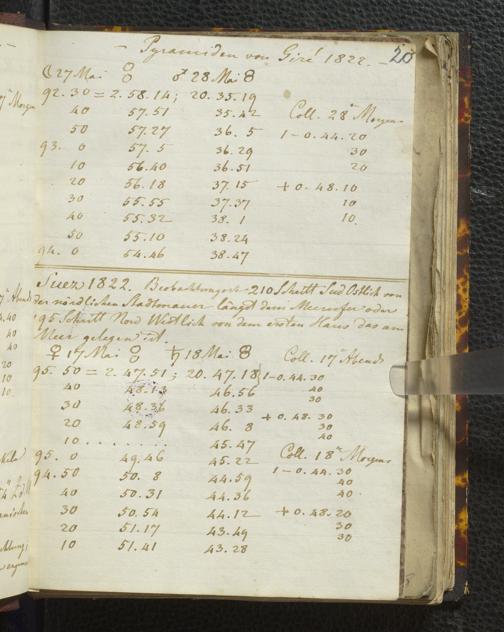 — Pyramiden von Gizé 1822. — 50
☾ 27 Mai ♂ 28 Mai
92.30 = 2.58.14; 20.35.19
40 57.51 35.42 Coll. 28 Morgen
50 57.27 36.5 1-0.44.20
93.0 57.5 36.29 30
10 56.40 36.51 20
20 56.18 37.15 +0.48.10
30 55.55 37.37 10
40 55.32 38.1 10
50 55.10 38.24
94.0 54.46 38.47
Suez 1822. Beobachtungsort 210 Schritt Süd Östlich von
der nördlichen Stadtmauer längst dem Meerufer oder
95 Schritt Nord Westlich von dem ersten Haus das am
Meer gelegen ist.
♀ 17 Mai ♄ 18 Mai Coll. 17 Abends
95.50 = 2.47.51; 20.47.18 1-0.44.30
40 48.13 46.56 40
30 48.36 46.33 30
+0.48.30
20 48.59 46.8 30
40
10 . . . . . . . . 45.47
95.0 49.46 45.22 Coll. 18 Morgens
94.50 50.8 44.59 1-0.44.30
40
40 50.31 44.36 40
30 50.54 44.12 +0.48.20
20 51.17 43.49 30
10 51.41 43.28 30